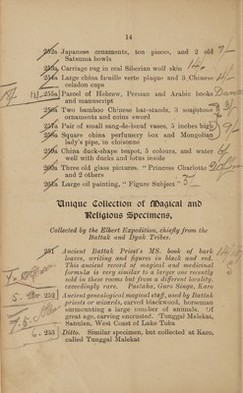 14
252a Japanese ornaments, ten pieces, and 2 old
Satsuma bowls
253a Carriage rug in real Siberian wolf skin
254a Large china famille verte plaque and 3 Chinese
celadon cups
255a Parcel of Hebrew, Persian and Arabic books
and manuscript
256a Two bamboo Chinese hat-stands, 3 soapstone
ornaments and coins sword
257a Pair of small sang-de-boeuf vases, 5 inches high
258a Square china perfumery box and Mongolian
lady's pipe, in cloisonne
259a China duck-shape teapot, 5 colours, and water
well with ducks and lotus inside
260a Three old glass pictures. "Princess Charlotte"
and 2 others
261a Large oil painting, "Figure Subject"
Unique Collection of Magical and
Religious Specimens,
Collected by the Elbert Expedition, chiefly from the
Battak and Dyak Tribes.
251 Ancient Battak Priest's MS. book of bark
leaves, writing and figures in black and red.
This ancient record of magical and medicinal
formula is very similar to a larger one recently
sold in these rooms but from a different locality.
exceedingly rare. Pustaha, Guru Singa, Karo
252 Ancient genealogical magical staff, used by Battak
priests or wizards, carved blackwood, horseman
surmounting a large number of animals. Of
great age, carving encrusted. Tunggal Malekat,
Sabulan, West Coast of Lake Toba
253 Ditto. Similar specimen, but collected at Karo,
called Tunggal Malekat